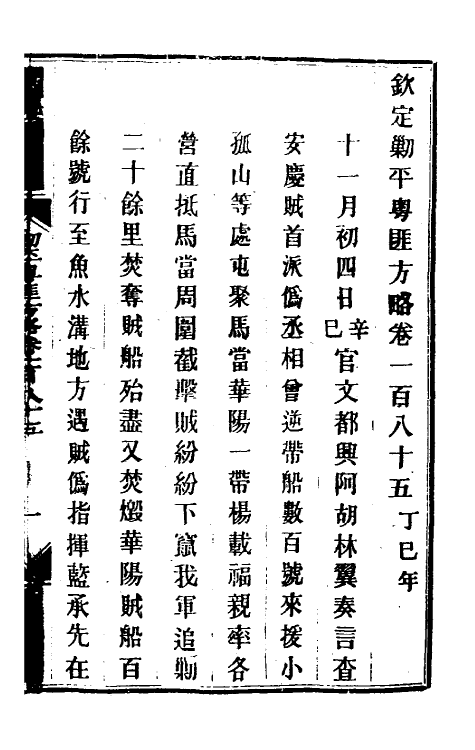 欽定勦平粵匪方略卷一百八十五丁巳年
十一月初四日辛巳官文都興阿胡林翼奏言查
安慶賊首派僞丞相曾逆帶船數百號來援小
孤山等處屯聚馬當華陽一帶楊載福親率各
營直抵馬當周圍截擊賊紛紛下竄我軍追勦
二十餘里焚奪賊船殆盡又焚燬華陽賊船百
餘號行至魚水溝地方遇賊僞指揮藍承先在